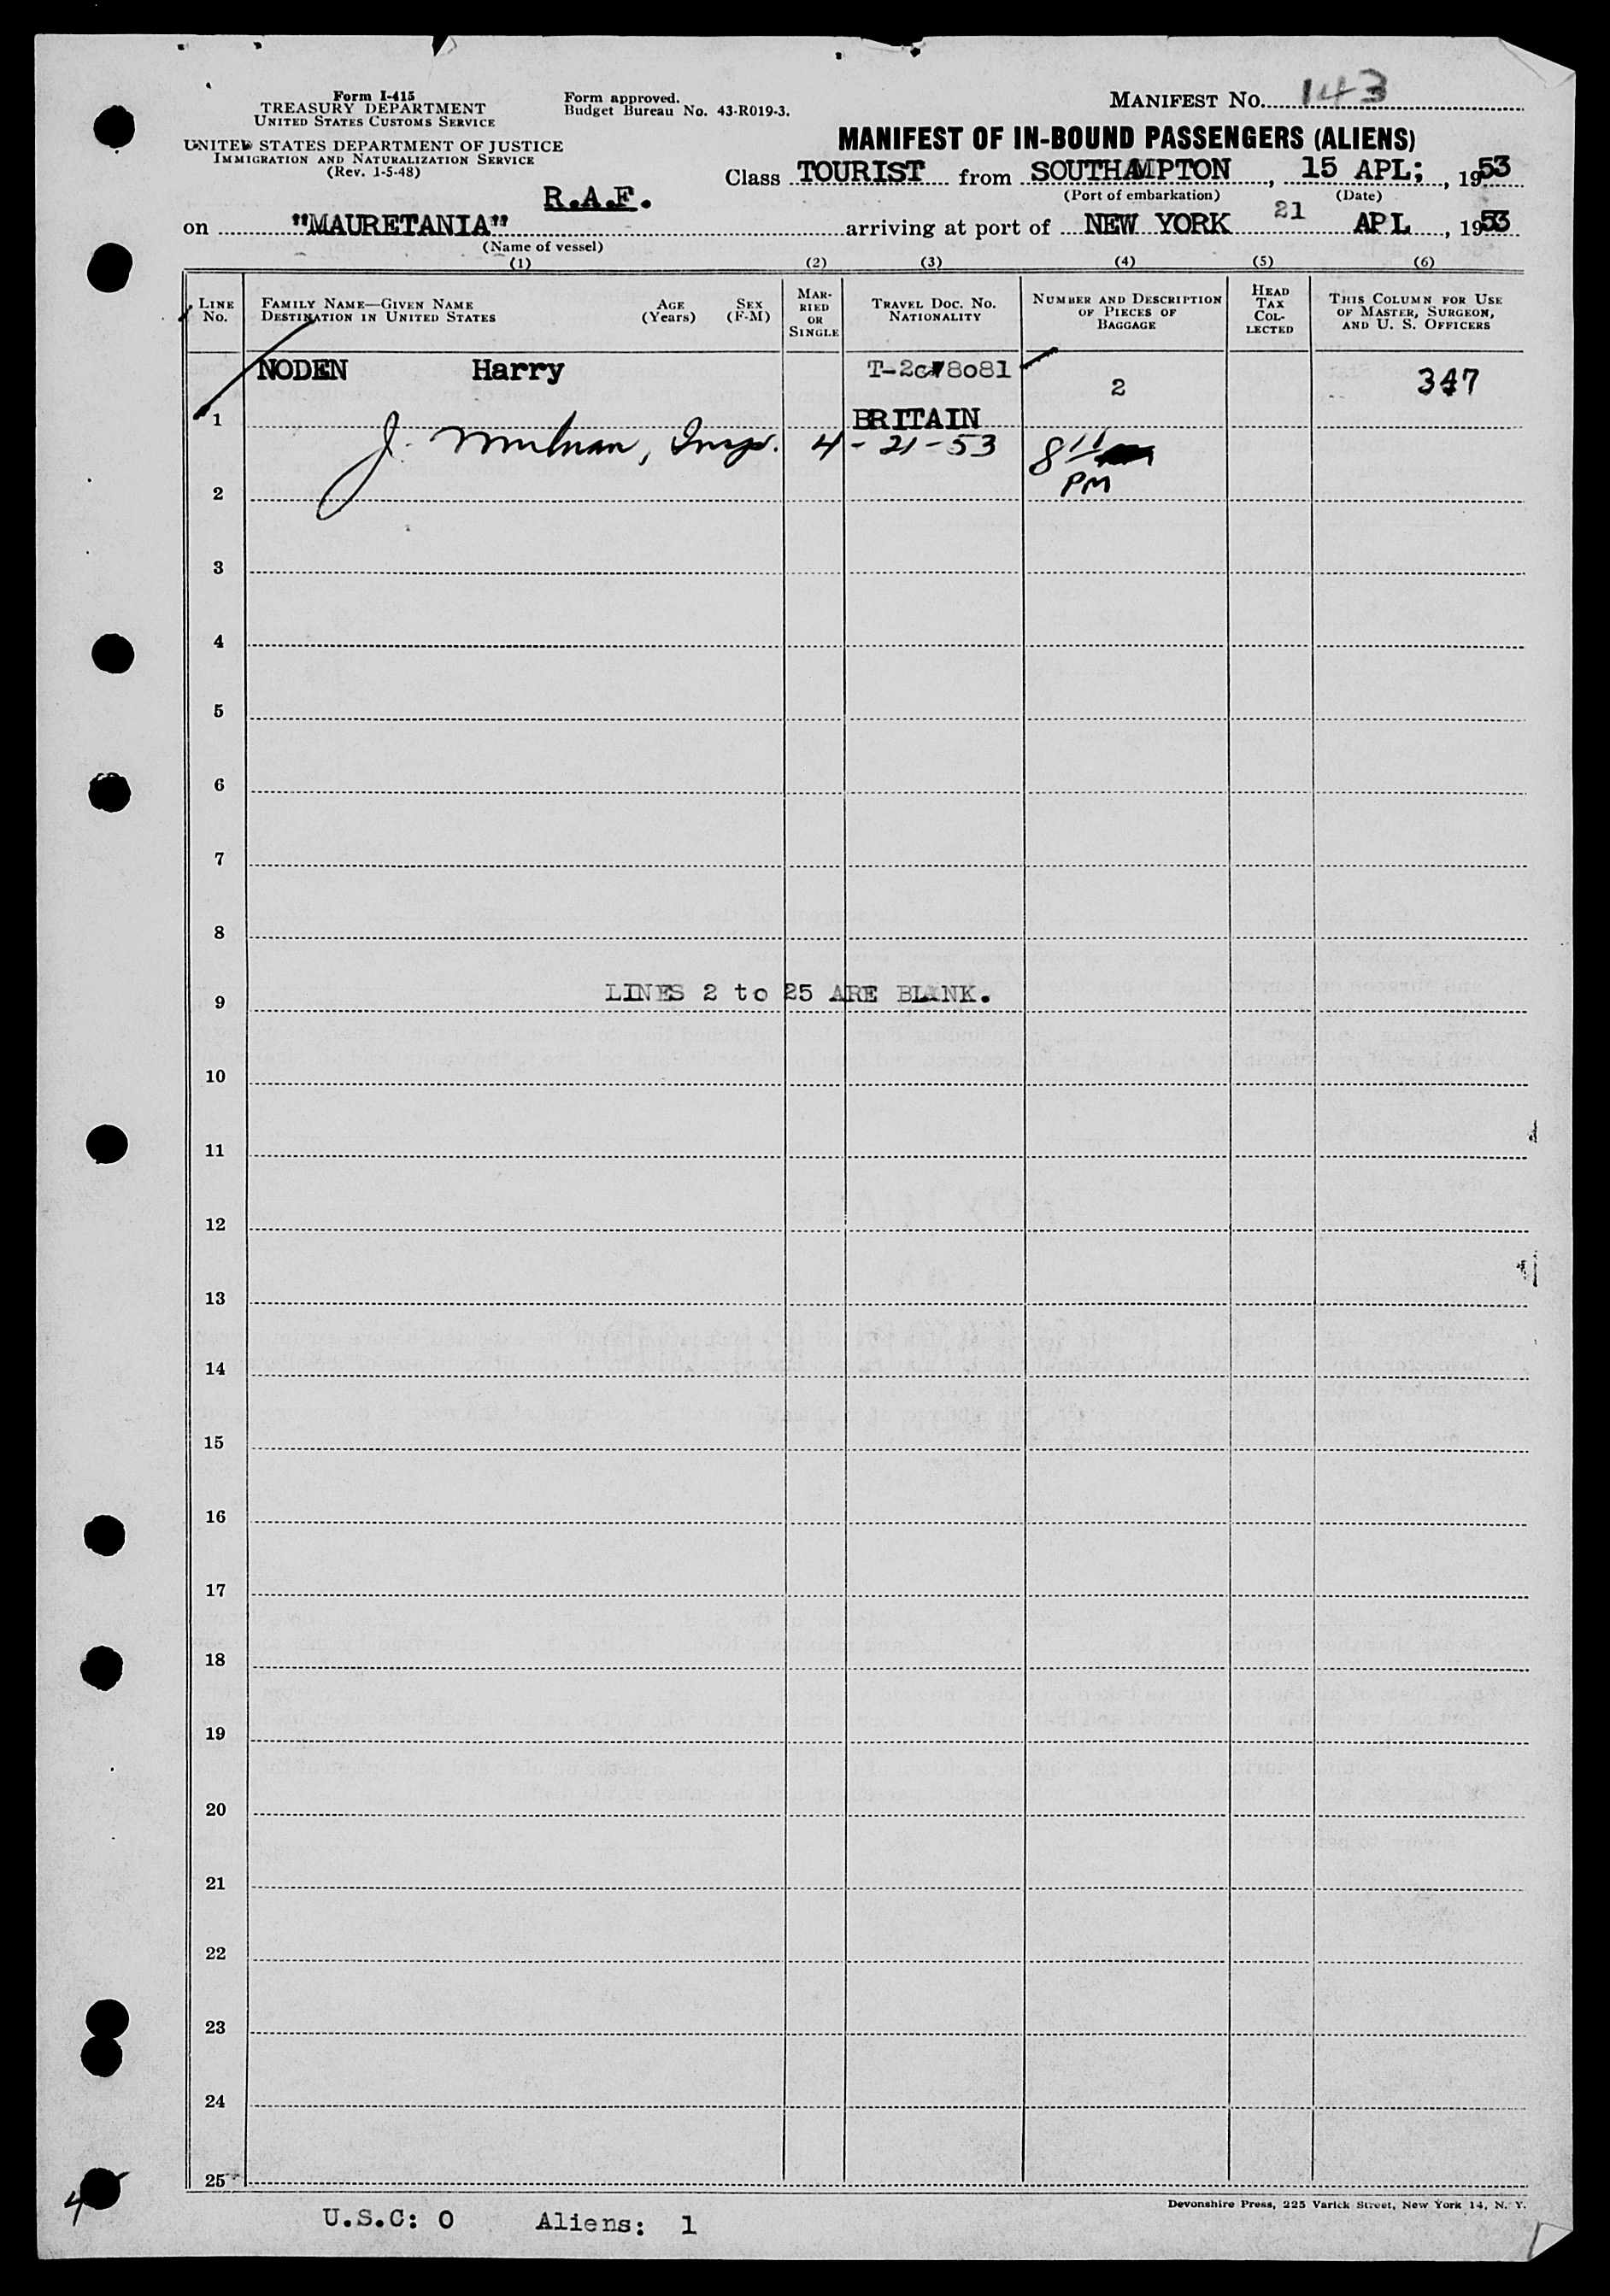 Form I-415
TREASURY DEPARTMENT
UNITED STATES CUSTOMS SERVICE
UNITED STATES DEPARTMENT OF JUSTICE
IMMIGRATION AND NATURALIZATION SERVICE
(Rev. 1-5-48)
Form approved.
Budget Bureau No. 43-R019-3.
MANIFEST No. 143
MANIFEST OF IN-BOUND PASSENGERS (ALIENS)
Class TOURIST from SOUTHAMPTON, 15 APL;, 1953
(Port of embarkation) (Date)
R.A.F.
on "MAURETANIA" arriving at port of NEW YORK 21 APL, 1953
(Name of vessel)
(1) (2) (3) (4) (5) (6)
LINE No.
FAMILY NAME—GIVEN NAME
DESTINATION IN UNITED STATES
AGE (Years)
SEX (F-M)
MARRIED OR SINGLE
TRAVEL DOC. NO.
NATIONALITY
NUMBER AND DESCRIPTION
OF PIECES OF
BAGGAGE
HEAD
TAX
COL-
LECTED
THIS COLUMN FOR USE
OF MASTER, SURGEON,
AND U. S. OFFICERS
NODEN Harry 2 347
1 BRITAIN
J. 4-21-53 8
PM
2
3
4
5
6
7
8
9 LINES 2 to 25 ARE BLANK.
10
11
12
13
14
15
16
17
18
19
20
21
22
23
24
25
Devonshire Press, 225 Varick Street, New York 14, N. Y.
4
U.S.C: 0 Aliens: 1